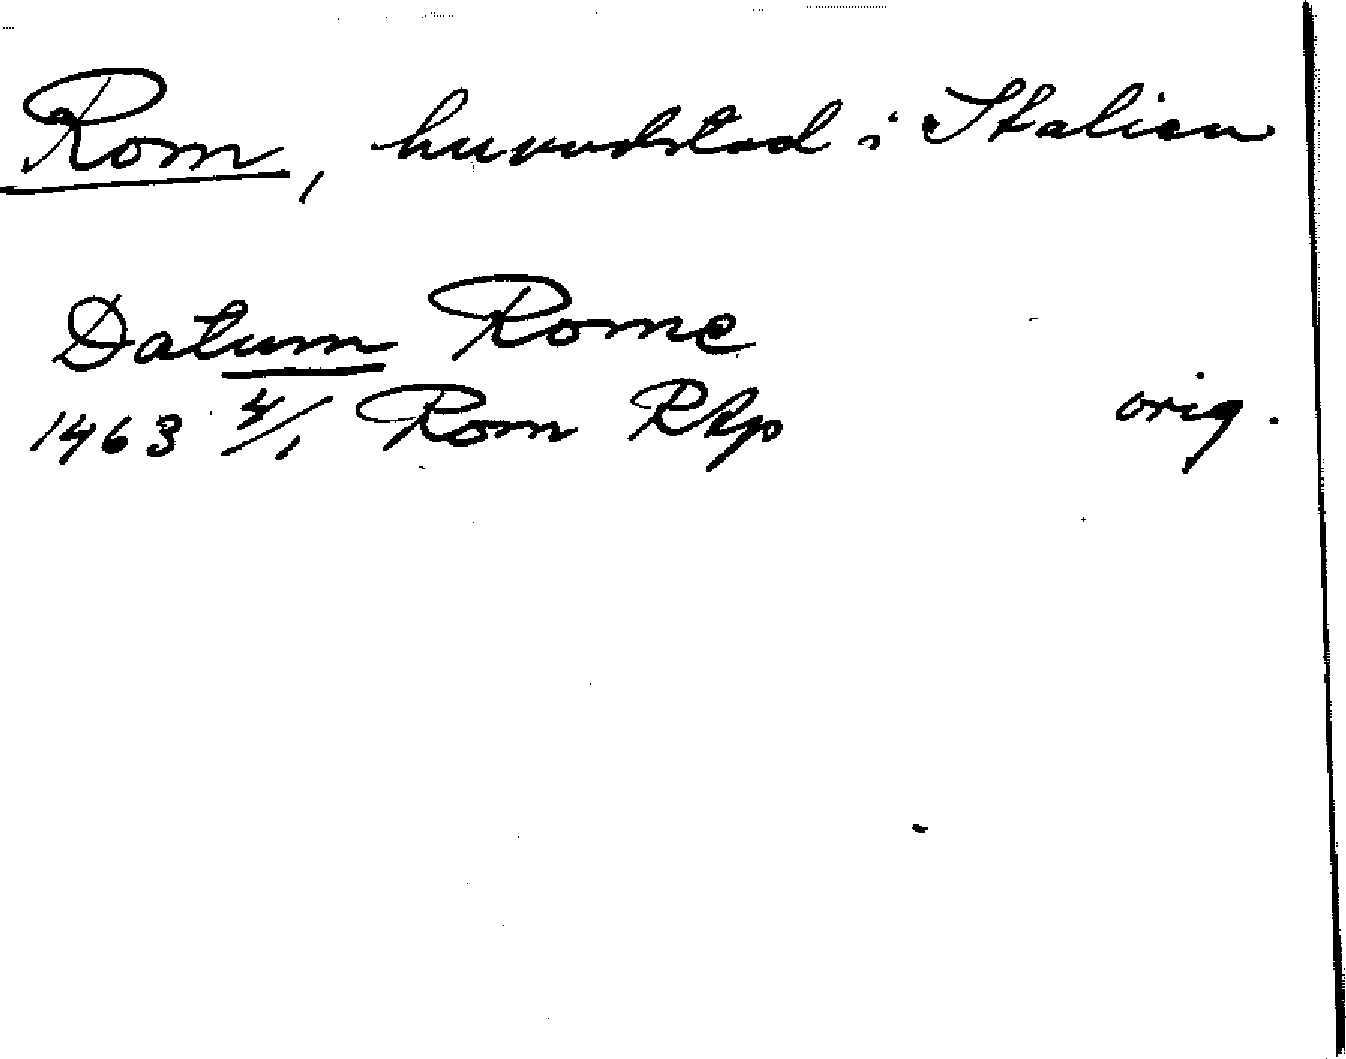 Rom, huvudstad i Italien
Datum Rome
1463 4/1 Rom RAp orig.